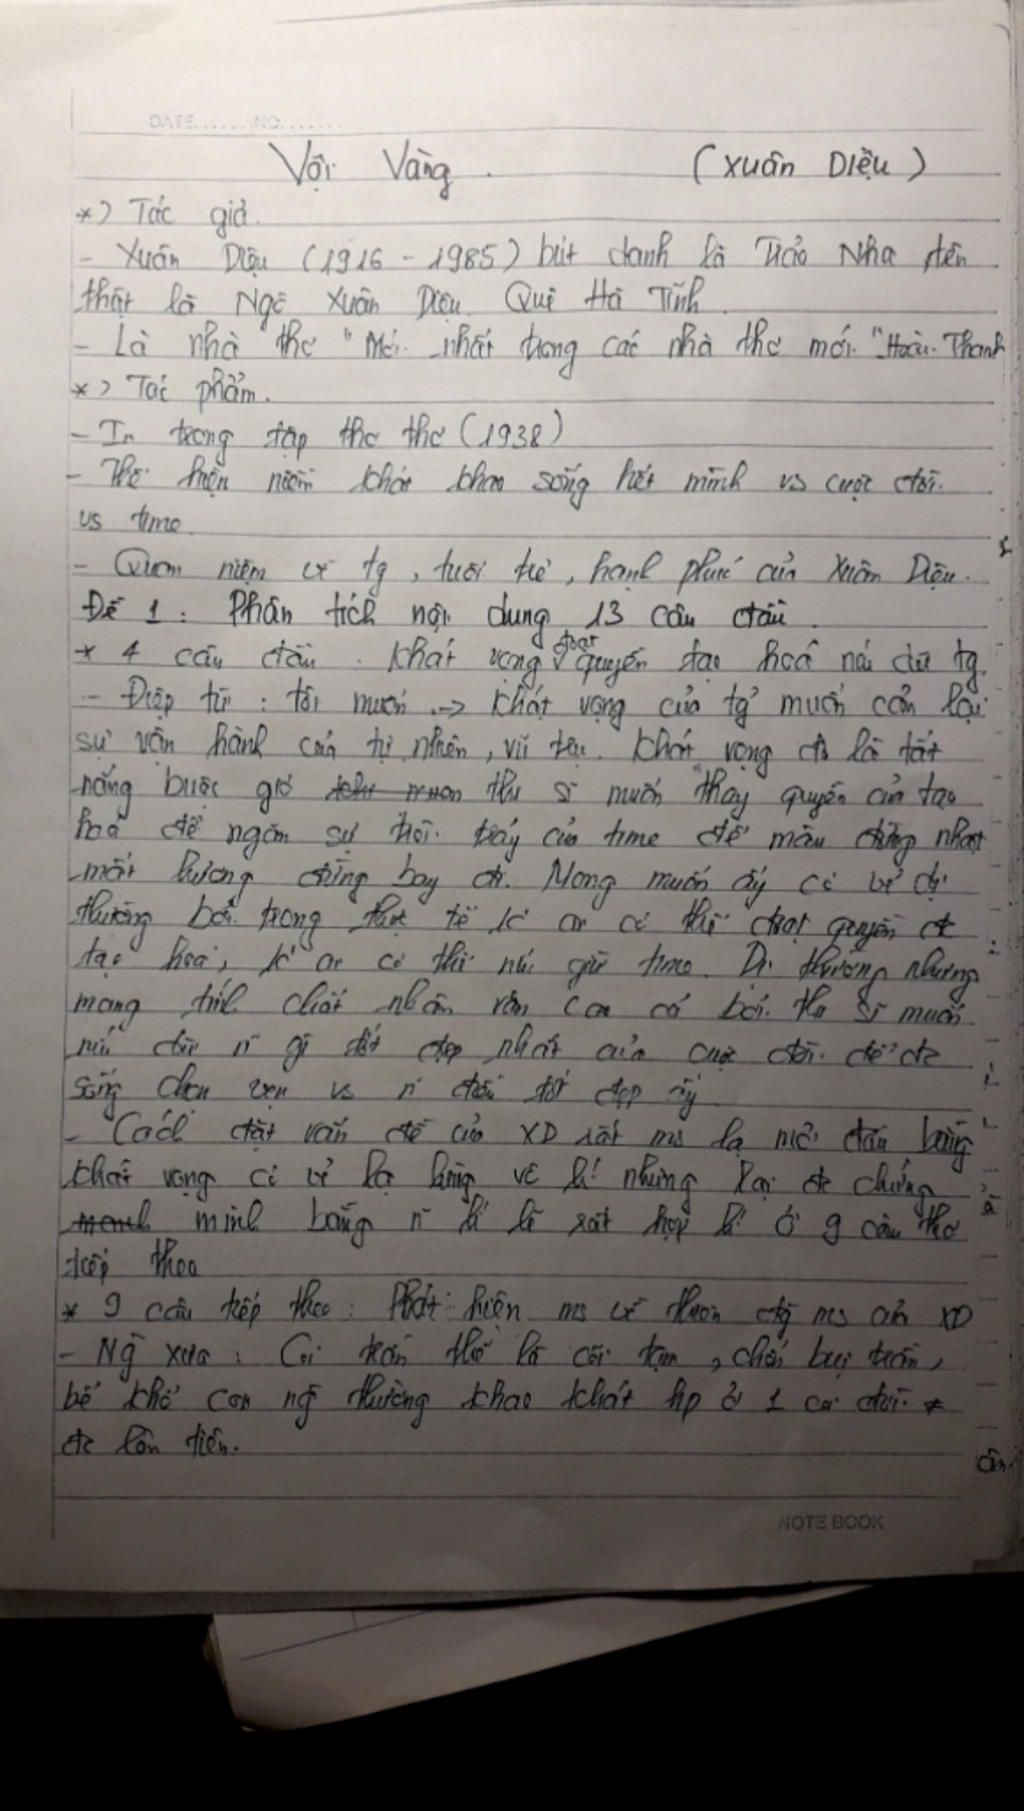 DATE.......NO.......
Vội Vàng. (Xuân Diệu)
*) Tác giả.
- Xuân Diệu (1916 - 1985) bút danh là Trảo Nha tên
thật là Ngô Xuân Diệu. Quê Hà Tĩnh
- Là nhà thơ "Mới nhất trong các nhà thơ mới." Hoài Thanh
*) Tác phẩm.
- In trong tập thơ thơ (1938)
- Thể hiện niềm khát khao sống hết mình vs cuộc đời.
vs time
- Quan niệm về tg, tuổi trẻ, hạnh phúc của Xuân Diệu.
Đề 1: Phân tích nội dung 13 câu đầu.
* 4 câu đầu. Khát vọng đoạt quyền tạo hoá níu dữ tg.
- Điệp từ: tôi muốn -> khát vọng của tg muốn cản lại
sự vận hành của tự nhiên, vũ trụ. Khát vọng đó là tắt
nắng buộc gió thi sĩ muốn thay quyền của tạo
hoá để ngăn sự trôi chảy của time để màu đừng nhạt
mất hương đừng bay đi. Mong muốn ấy có vẻ dị
thường bởi trong thực tế k ai có thể đoạt quyền đc
tạo hoá, k ai có thể níu giữ time. Dị thường nhưng
mang tính chất nhân văn cao cả bởi thi sĩ muốn
níu dữ n gì tốt đẹp nhất của cuộc đời để đc
sống chọn vẹn vs n điều tốt đẹp ấy
- Cách đặt vấn đề của XD rất ms lạ mở đầu bằng
khát vọng có vẻ lạ lùng vô lí nhưng lại đc chứng
minh bằng n lí lẽ rất hợp lí ở 9 câu thơ
tiếp theo
* 9 câu tiếp theo: Phát hiện ms về thiên đg ms của XD
- Ng xưa: Cõi trần thế là cõi tạm, chốn bụi trần,
bể khổ con ng thường khao khát hp ở 1 cõi đời
đc lên tiên.
NOTE BOOK